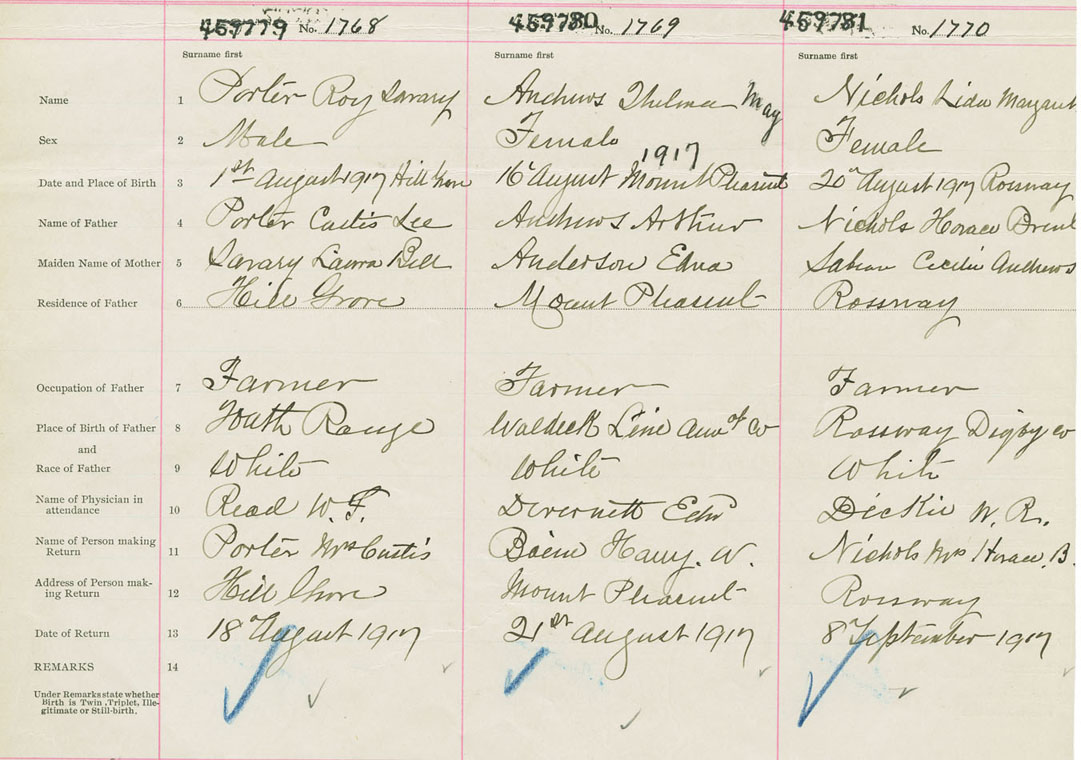 459779 No. 1768 459780 No. 1769 459781 No. 1770
Surname first Surname first Surname first
Name 1 Porter Roy Savary Andrews Thelma May Nichols Lida Margaret
Sex 2 Male Female Female
1917
Date and Place of Birth 3 1st August 1917 Hill Grove 16 August Mount Pleasant 20 August 1917 Rossway
Name of Father 4 Porter Custis Lee Andrews Arthur Nichols Horace
Maiden Name of Mother 5 Savary Laura Bell Anderson Edna Cecilia Andrews
Residence of Father 6 Hill Grove Mount Pleasant Rossway
Occupation of Father 7 Farmer Farmer Farmer
Place of Birth of Father 8 South Range Waldeck Line Co Rossway Digby Co
and
Race of Father 9 White White White
Name of Physician in
attendance 10 Read W. F. Edw Dickie W. R.
Name of Person making
Return 11 Porter Mrs Custis Harry. W. Nichols Mrs Horace. B.
Address of Person mak-
ing Return 12 Hill Grove Mount Pleasant Rossway
Date of Return 13 18 August 1917 21st August 1917 8 September 1917
REMARKS 14
Under Remarks state whether
Birth is Twin, Triplet, Ille-
gitimate or Still-birth.